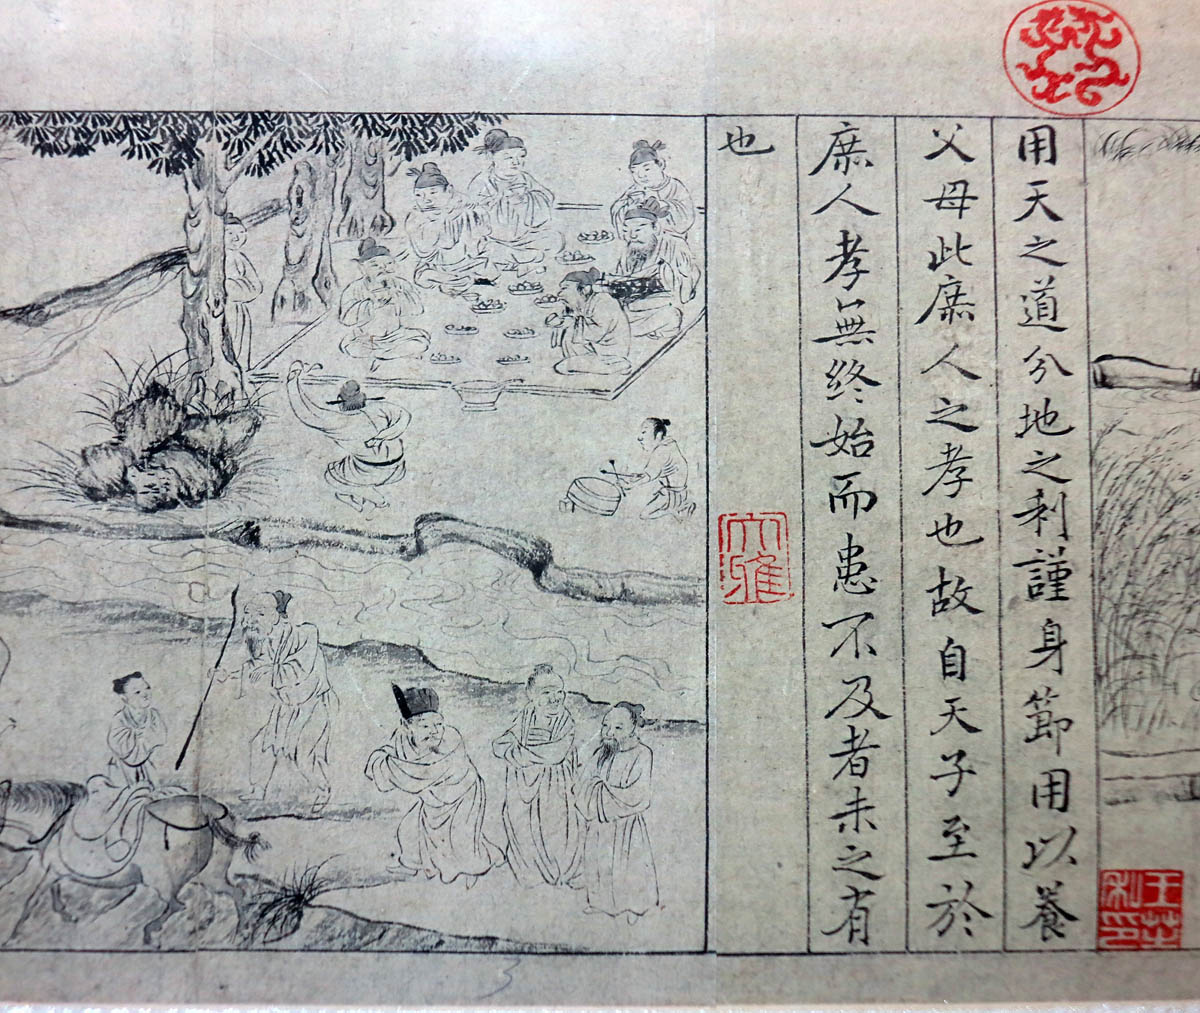 用天之道分地之利謹身節用以養
父母此庶人之孝也故自天子至於
庶人孝無終始而患不及者未之有
也
大雅